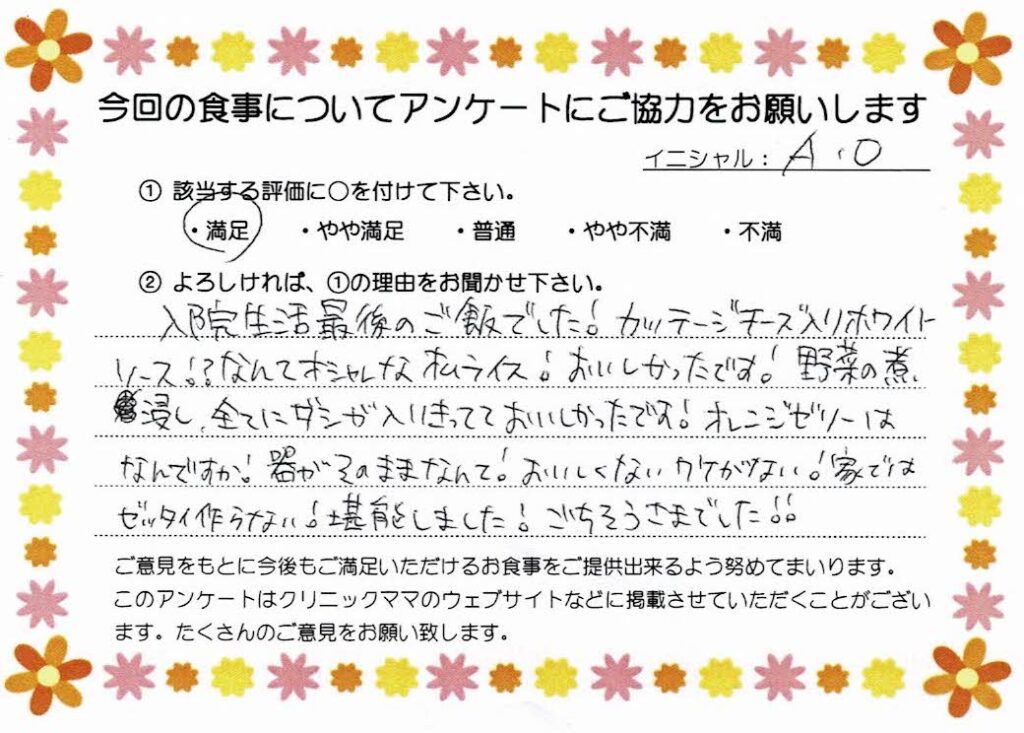 今回の食事についてアンケートにご協力をお願いします
イニシャル： A.O
① 該当する評価に○を付けて下さい。
・満足 ・やや満足 ・普通 ・やや不満 ・不満
② よろしければ、①の理由をお聞かせ下さい。
入院生活最後のご飯でした！カッテージチーズ入りホワイト
ソース！？なんてオシャレなオムライス！おいしかったです！野菜の煮
浸し、全てにダシが入りきってておいしかったです！オレンジゼリーは
なんですか！器がそのままなんて！おいしくないワケがない！家では
ゼッタイ作らない！堪能しました！ごちそうさまでした!!
ご意見をもとに今後もご満足いただけるお食事をご提供出来るよう努めてまいります。
このアンケートはクリニックママのウェブサイトなどに掲載させていただくことがござい
ます。たくさんのご意見をお願い致します。